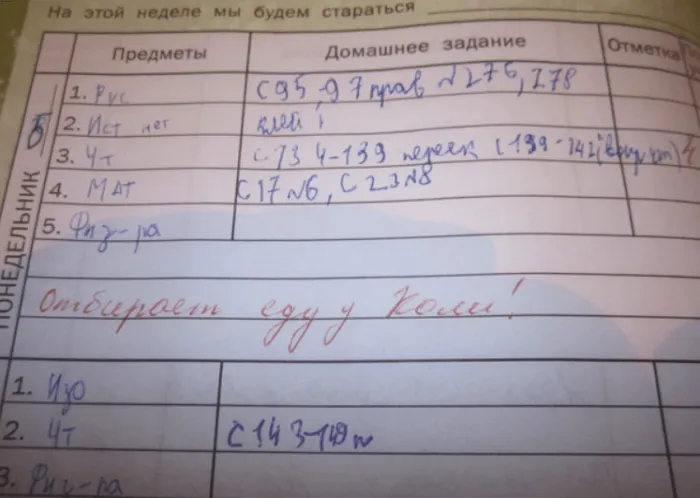 На этой неделе мы будем стараться
Предметы Домашнее задание Отметка
ПОНЕДЕЛЬНИК
5
1. Рус С 95, 97 прав №276, 278
2. Ист нет клей
3. Чт с 134-139 переск с 139-142
4. МАТ С 17 №6, С 23 №8
5. Физ-ра
Отбирает еду у Коли!
1. Изо
2. Чт С 143-149
3. Физ-ра